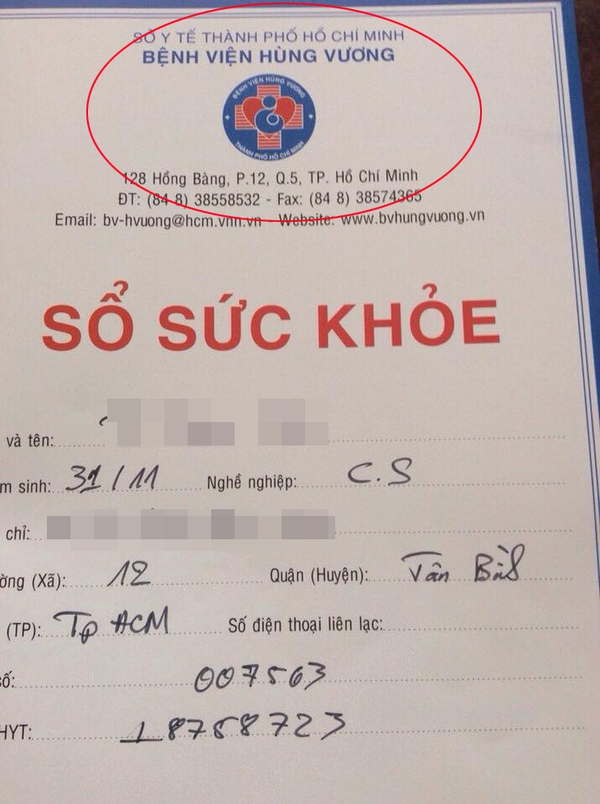 SỞ Y TẾ THÀNH PHỐ HỒ CHÍ MINH
BỆNH VIỆN HÙNG VƯƠNG
BỆNH VIỆN HÙNG VƯƠNG
THÀNH PHỐ HỒ CHÍ MINH
128 Hồng Bàng, P.12, Q.5, TP. Hồ Chí Minh
ĐT: (84 8) 38558532 - Fax: (84 8) 38574365
Email: bv-hvuong@hcm.vnn.vn - Website: www.bvhungvuong.vn
SỔ SỨC KHỎE
và tên:
m sinh: 31/11 Nghề nghiệp: C.S
chỉ:
ờng (Xã): 12 Quận (Huyện): Tân
(TP): Tp HCM Số điện thoại liên lạc:
số: 007563
HYT: 18758723